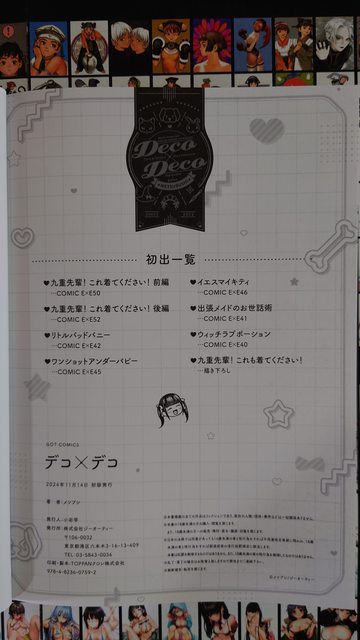 Deco
×
Deco
初出一覧
♥九重先輩！これ着てください！前編
…COMIC E×E50
♥九重先輩！これ着てください！後編
…COMIC E×E52
♥リトルバッドバニー
…COMIC E×E42
♥ワンショットアンダーバビー
…COMIC E×E45
♥イエスマイキティ
…COMIC E×E46
♥出張メイドのお世話術
…COMIC E×E41
♥ウィッチラブポーション
…COMIC E×E40
♥九重先輩！これも着てください！
…描き下ろし
GOT COMICS
デコ×デコ
2024年11月14日 初版発行
著 者：メツブシ
発行人：小岩孝
発行所：株式会社ジーオーティー
〒106-0032
東京都港区六本木3-16-13-409
TEL 03-5843-0034
印刷・製本：TOPPANクロレ株式会社
978-4-8236-0759-2
©メツブシ/ジーオーティー